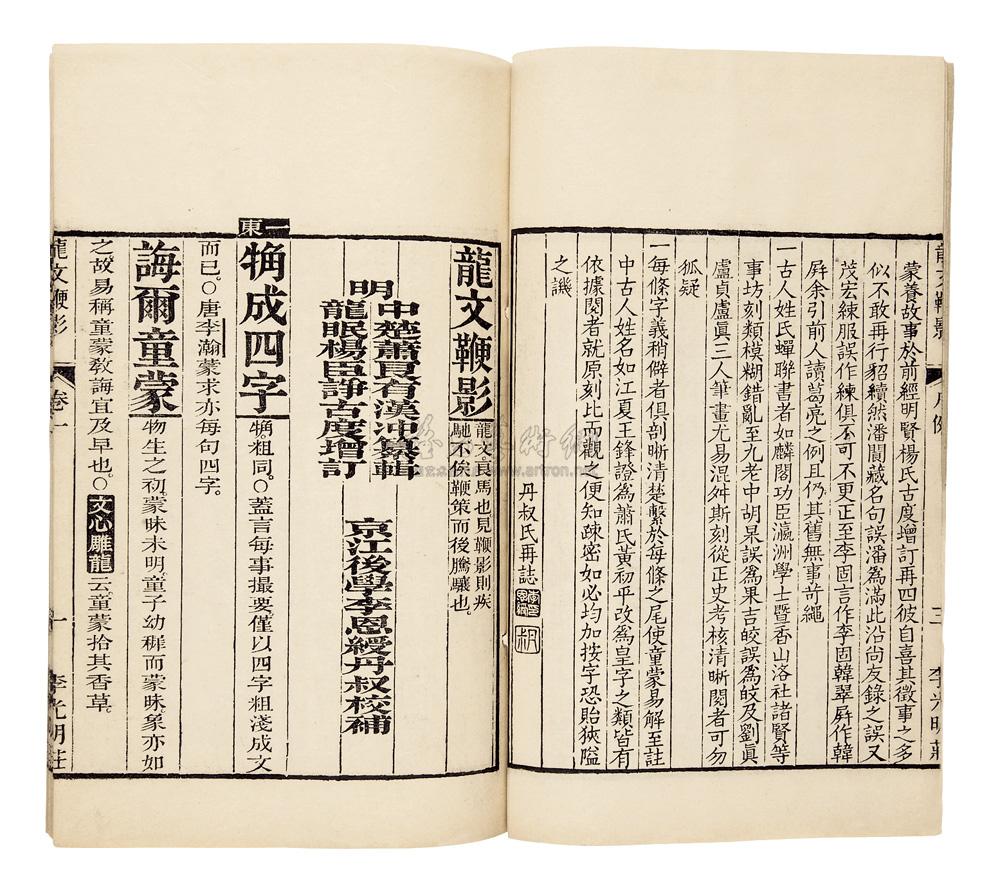 蒙養故事於前經明賢楊氏古度增訂再四彼自喜其徵事之多
似不敢再行貂續然潘閬藏名句誤潘爲滿此沿尚友錄之誤又
茂宏練服誤作練俱不可不更正至李固言作李固韓翠屛作韓
屛余引前人讀葛亮之例且仍其舊無事苛繩
一古人姓氏蟬聯書者如麟閣功臣瀛洲學士暨香山洛社諸賢等
事坊刻類模糊錯亂至九老中胡杲誤爲果吉皎誤爲皎及劉眞
盧貞盧眞三人筆畫尤易混舛斯刻從正史考核清晰閱者可勿
狐疑
一每條字義稍僻者俱剖晰清楚繫於每條之尾使童蒙易解至註
中古人姓名如江夏王鋒證爲蕭氏黃初平改爲皇字之類皆有
依據閱者就原刻比而觀之便知疎密如必均加按字恐貽狹隘
之譏
丹叔氏再誌
三
李光明莊
龍文鞭影
龍文良馬也見鞭影則疾
馳不俟鞭策而後騰驤也。
明
中楚蕭良有漢沖纂輯
龍眠楊臣諍古度增訂
京江後學李恩綬丹叔校補
一東
觕成四字
觕。粗同。〇蓋言每事撮要。僅以四字粗淺成文
而已。〇唐李瀚蒙求亦每句四字。
誨爾童蒙
物生之初。蒙昧未明。童子幼穉而蒙昧。象亦如
之。故易稱童蒙。教誨宜及早也。〇文心雕龍云。童蒙拾其香草。
龍文鞭影
卷一
一
李光明莊